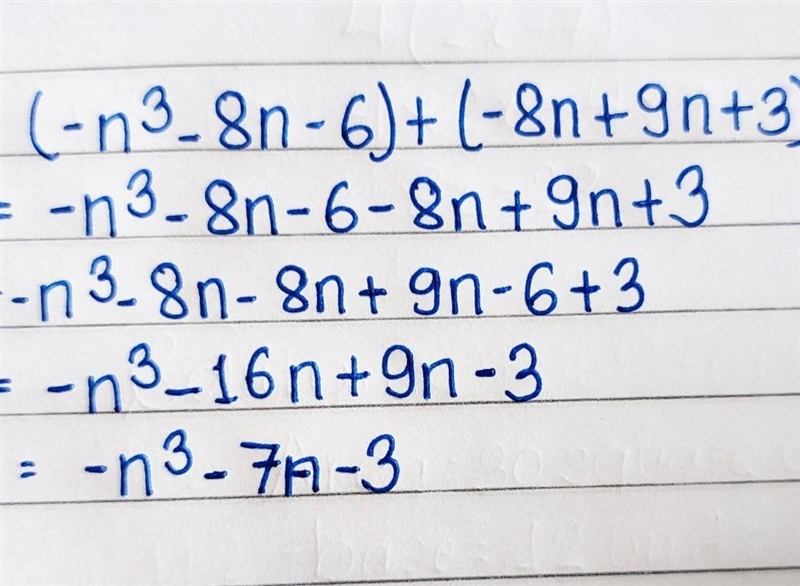 (-n³-8n-6)+(-8n+9n+3)
= -n³-8n-6-8n+9n+3
-n³-8n-8n+9n-6+3
= -n³-16n+9n-3
= -n³-7n-3